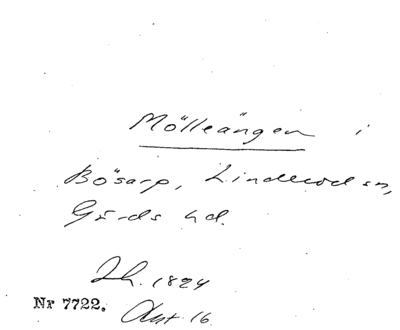 Mölleängen i
Bösarp, Linderöd sn,
Gärds hd.
Lh. 1824
Nr 7722. Akt 16